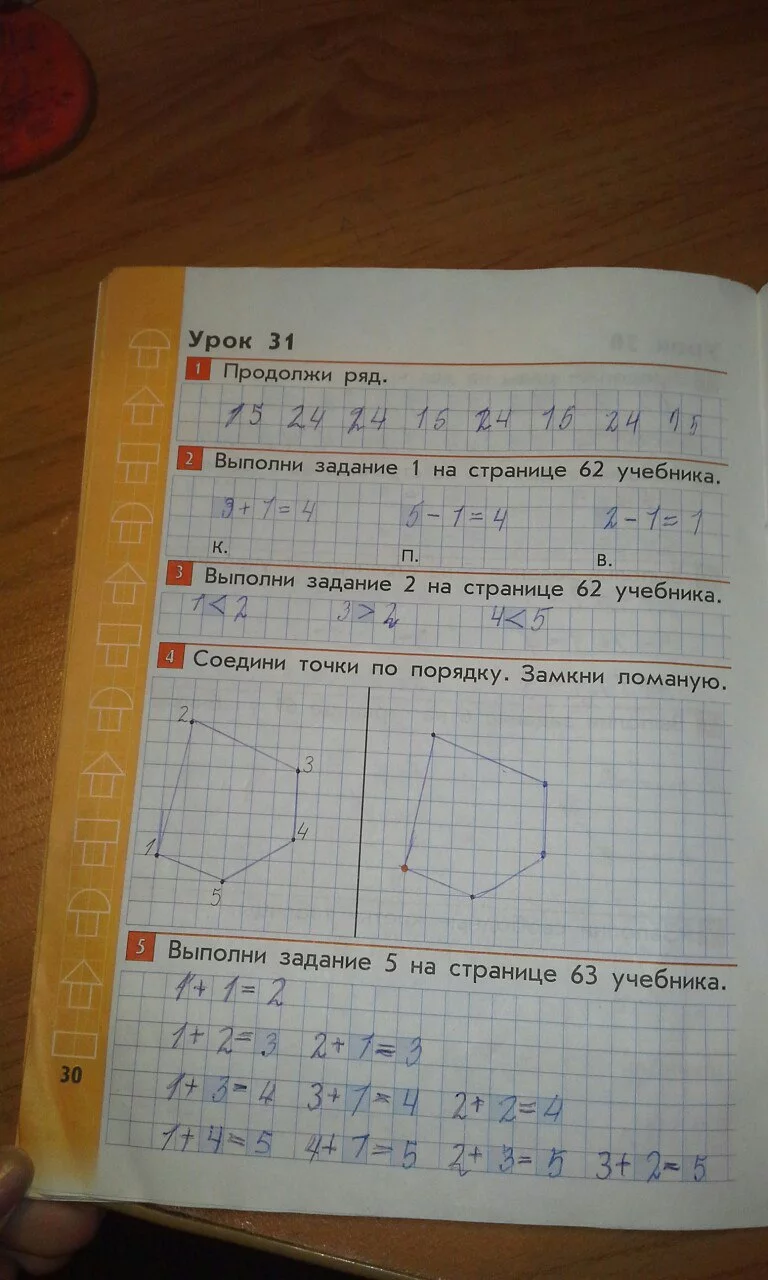 Урок 31
1 Продолжи ряд.
15 24 24 15 24 15 24 15
2 Выполни задание 1 на странице 62 учебника.
3+1=4 5-1=4 2-1=1
К. П. В.
3 Выполни задание 2 на странице 62 учебника.
1<2 3>2 4<5
4 Соедини точки по порядку. Замкни ломаную.
2
3
4
1
5
5 Выполни задание 5 на странице 63 учебника.
1+1=2
1+2=3 2+1=3
1+3=4 3+1=4 2+2=4
1+4=5 4+1=5 2+3=5 3+2=5
30